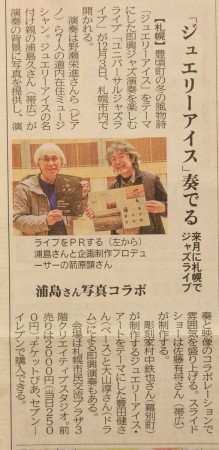 「ジュエリーアイス」奏でる
来月に札幌で
ジャズライブ
【札幌】豊頃町の冬の風物詩
「ジュエリーアイス」をテーマ
にした即興ジャズ演奏を楽しむ
ライブ「ユニバーサルジャズラ
イブ」が12月3日、札幌市内で
開かれる。
演奏は野瀬栄進さん(ピア
ノ)ら7人の道内在住ミュージ
シャン。ジュエリーアイスの名
付け親の浦島久さん(帯広)が
演奏の背景に写真を提供し、演
ライブをPRする(左から)
浦島さんと企画制作プロデュ
ーサーの前原顕さん
浦島さん写真コラボ
奏と映像のコラボレーションで
雰囲気を盛り上げる。スライド
ショーは佐藤有将さん(帯広)
が制作する。
彫刻家村中鉄也さん(幕別町)
が制作するジュエリーアイス・
アートをテーマにした豊田健さ
ん(ベース)と大山淳さん(ドラ
ム)による即興演奏もある。
会場は札幌市民交流プラザ3
階クリエイティブスタジオ。前
売りは2000円(当日250
0円)。チケットぴあ、セブン―
イレブンで購入できる。